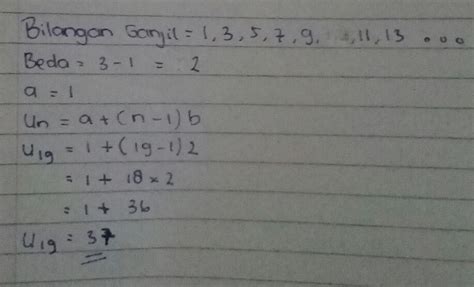 Bilangan Ganjil = 1, 3, 5, 7, 9, 11, 13 ...
Beda = 3 - 1 = 2
a = 1
Un = a + (n - 1) b
U19 = 1 + (19 - 1) 2
= 1 + 18 × 2
= 1 + 36
U19 = 37